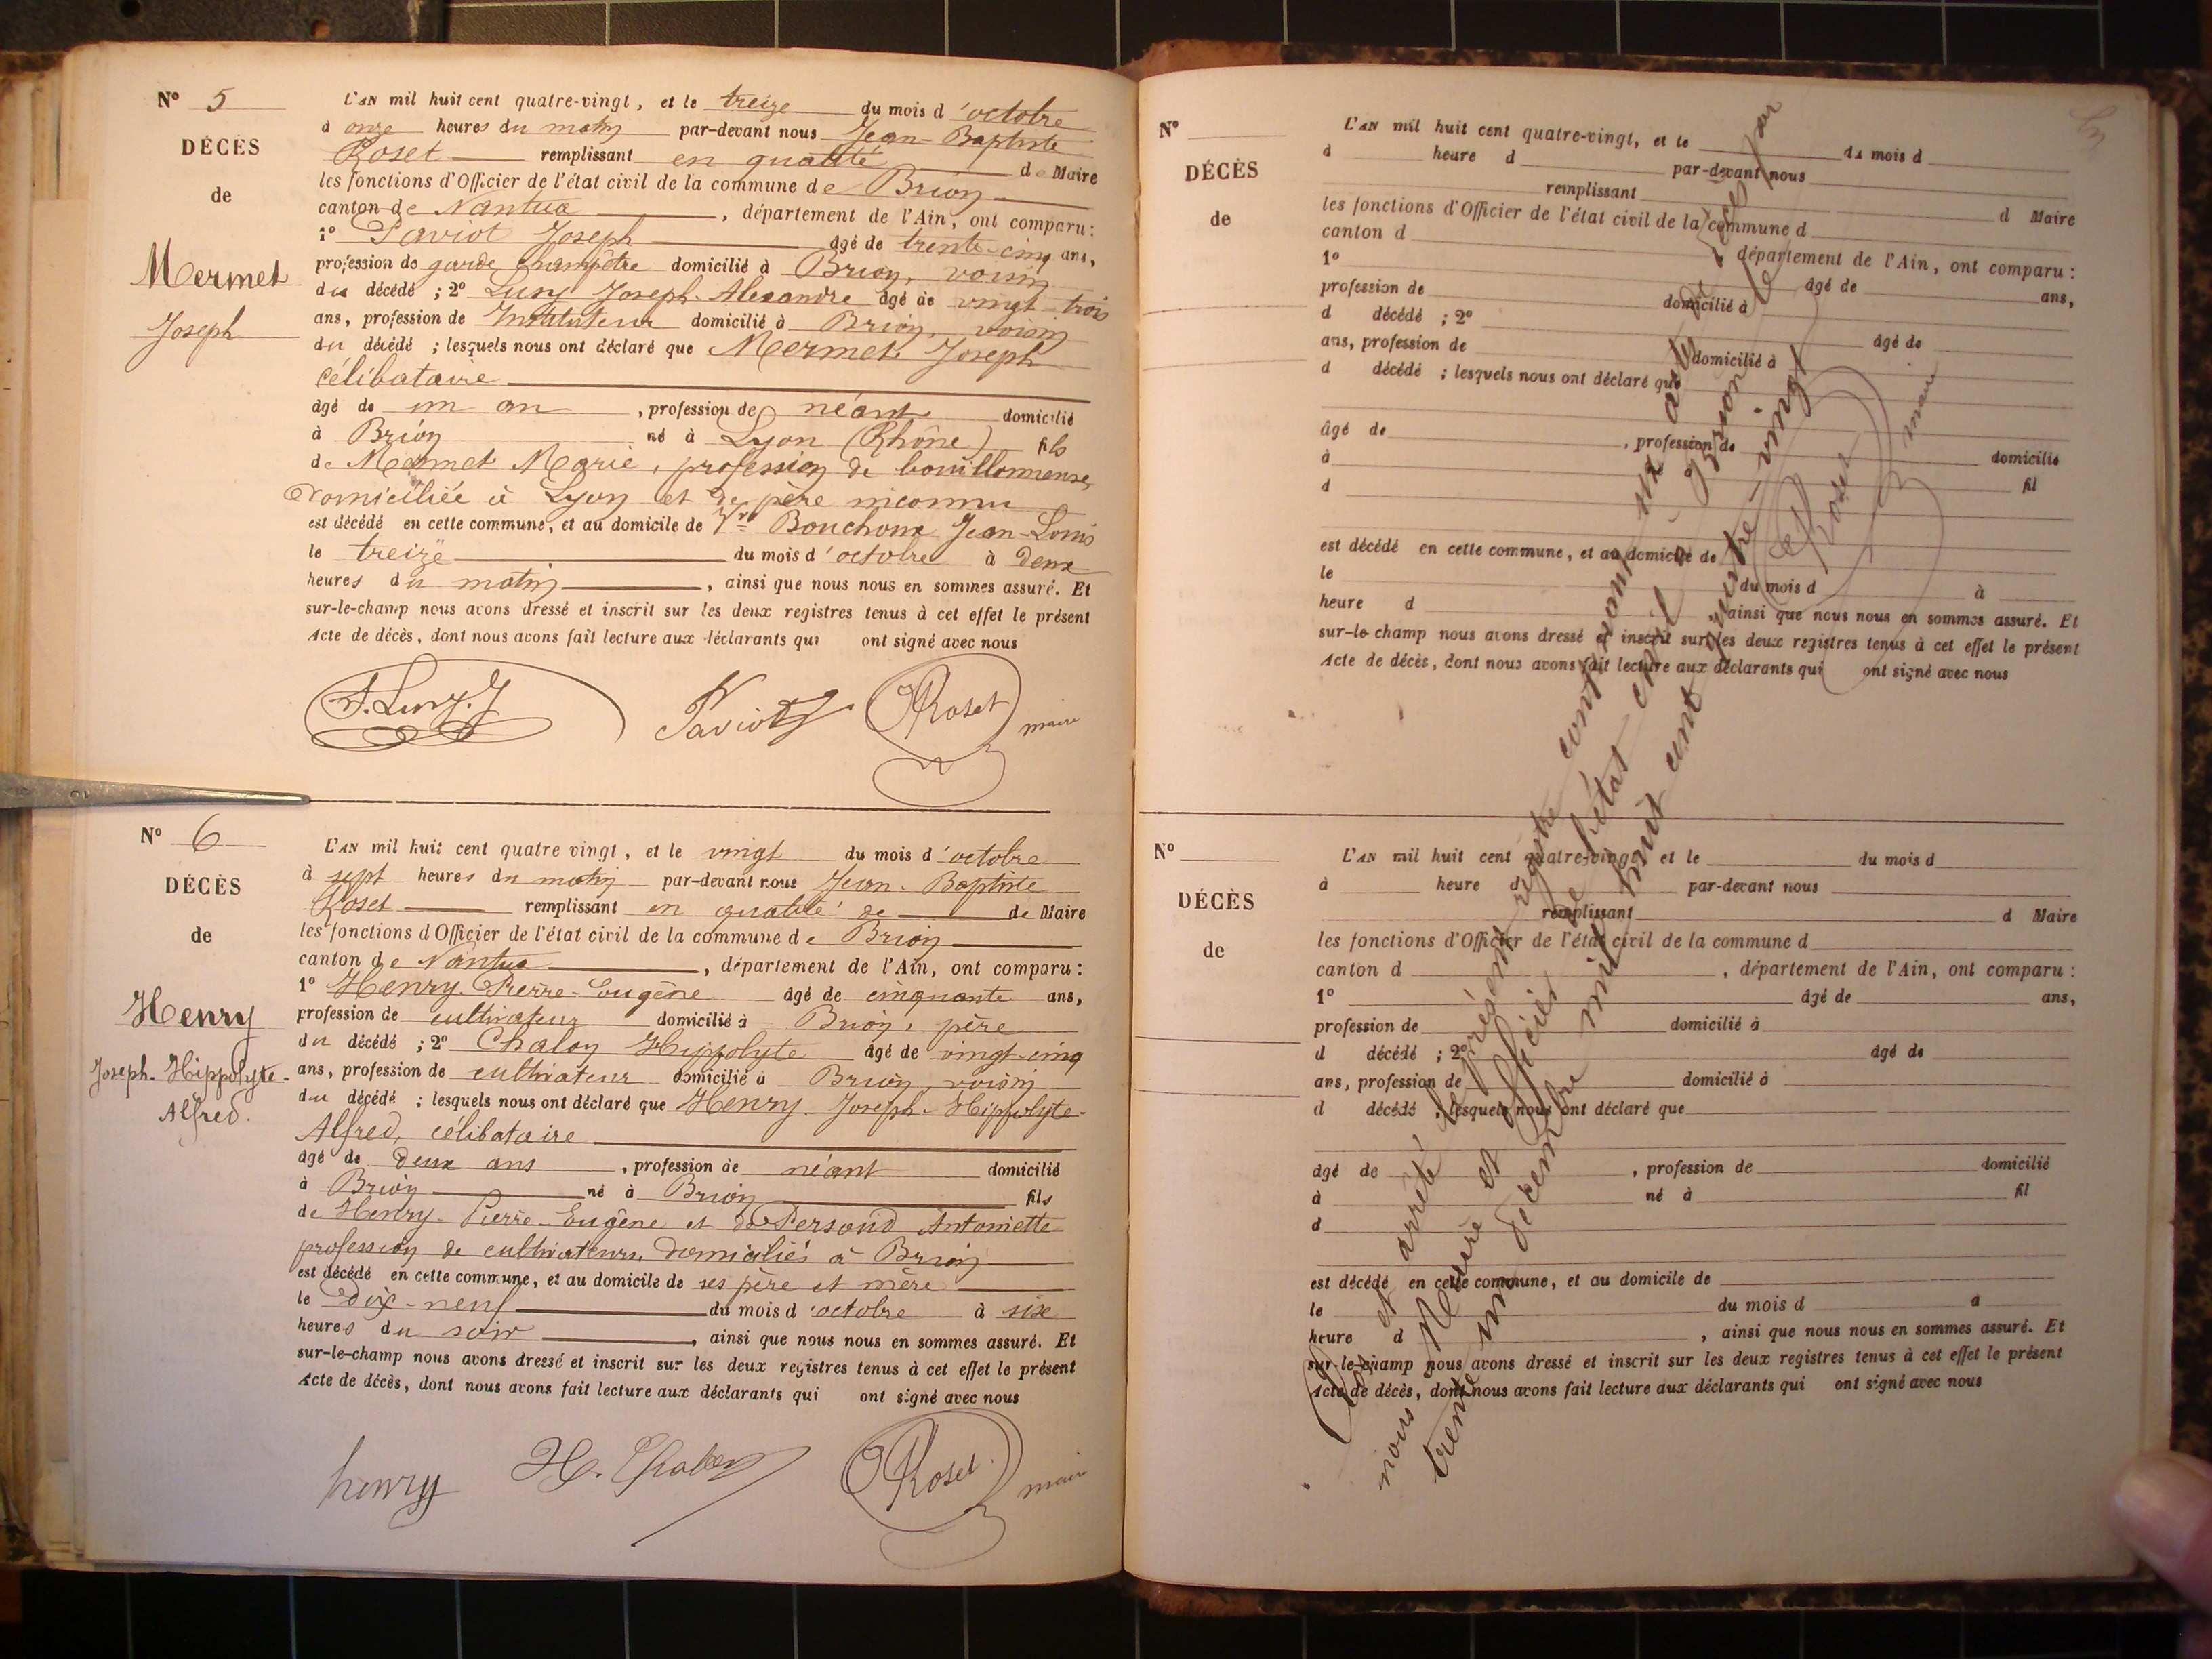 N° 5
DÉCÈS
de
Mermet
Joseph
L'AN mil huit cent quatre-vingt, et le treize du mois d'octobre
à onze heures du matin par-devant nous Jean-Baptiste
Roset remplissant en qualité de Maire
les fonctions d'Officier de l'état civil de la commune de Brion
canton de Nantua, département de l'Ain, ont comparu :
1° Paviot Joseph âgé de trente-cinq ans,
profession de garde champêtre domicilié à Brion, voisin
du décédé ; 2° Luny Joseph-Alexandre âgé de vingt-trois
ans, profession de Instituteur domicilié à Brion, voisin
du décédé ; lesquels nous ont déclaré que Mermet Joseph
célibataire
âgé de un an, profession de néant domicilié
à Brion né à Lyon (Rhône) fils
de Mermet Marie, profession de bouillonneuse,
domiciliée à Lyon et de père inconnu
est décédé en cette commune, et au domicile de Bouchoux Jean-Louis
le treize du mois d'octobre à deux
heures du matin, ainsi que nous nous en sommes assuré. Et
sur-le-champ nous avons dressé et inscrit sur les deux registres tenus à cet effet le présent
Acte de décès, dont nous avons fait lecture aux déclarants qui ont signé avec nous
Paviot Roset maire
N° 6
DÉCÈS
de
Henry
Joseph-Hippolyte-
Alfred.
L'AN mil huit cent quatre vingt, et le vingt du mois d'octobre
à sept heures du matin par-devant nous Jean-Baptiste
Roset remplissant en qualité de de Maire
les fonctions d'Officier de l'état civil de la commune de Brion
canton de Nantua, département de l'Ain, ont comparu :
1° Henry Pierre-Eugène âgé de cinquante ans,
profession de cultivateur domicilié à Brion, père
du décédé ; 2° Chalon Hippolyte âgé de vingt-cinq
ans, profession de cultivateur domicilié à Brion, voisin
du décédé ; lesquels nous ont déclaré que Henry Joseph-Hippolyte-
Alfred, célibataire
âgé de deux ans, profession de néant domicilié
à Brion né à Brion fils
de Henry Pierre-Eugène et de Persoud Antoniette
profession de cultivateurs, domiciliés à Brion
est décédé en cette commune, et au domicile de ses père et mère
le dix-neuf du mois d'octobre à six
heures du soir, ainsi que nous nous en sommes assuré. Et
sur-le-champ nous avons dressé et inscrit sur les deux registres tenus à cet effet le présent
Acte de décès, dont nous avons fait lecture aux déclarants qui ont signé avec nous
henry H. Chalon Roset maire
N°
DÉCÈS
de
L'AN mil huit cent quatre-vingt, et le du mois d
à heure d par-devant nous
remplissant d Maire
les fonctions d'Officier de l'état civil de la commune d
canton d, département de l'Ain, ont comparu :
1° âgé de ans,
profession de domicilié à
d décédé ; 2° âgé de
ans, profession de domicilié à
d décédé ; lesquels nous ont déclaré que
âgé de, profession de domicilié
à fil
d
est décédé en cette commune, et au domicile de
le du mois d à
heure d, ainsi que nous nous en sommes assuré. Et
sur-le-champ nous avons dressé et inscrit sur les deux registres tenus à cet effet le présent
Acte de décès, dont nous avons fait lecture aux déclarants qui ont signé avec nous
N°
DÉCÈS
de
L'AN mil huit cent quatre-vingt, et le du mois d
à heure d par-devant nous
remplissant d Maire
les fonctions d'Officier de l'état civil de la commune d
canton d, département de l'Ain, ont comparu :
1° âgé de ans,
profession de domicilié à
d décédé ; 2° âgé de
ans, profession de domicilié à
d décédé ; lesquels nous ont déclaré que
âgé de, profession de domicilié
à né à fil
d
est décédé en cette commune, et au domicile de
le du mois d à
heure d, ainsi que nous nous en sommes assuré. Et
sur-le-champ nous avons dressé et inscrit sur les deux registres tenus à cet effet le présent
Acte de décès, dont nous avons fait lecture aux déclarants qui ont signé avec nous
Clos et arrêté le présent registre contenant six actes de décès par
nous Maire et officier de l'état civil de Brion le
trente un décembre mil huit cent quatre-vingt
Roset maire